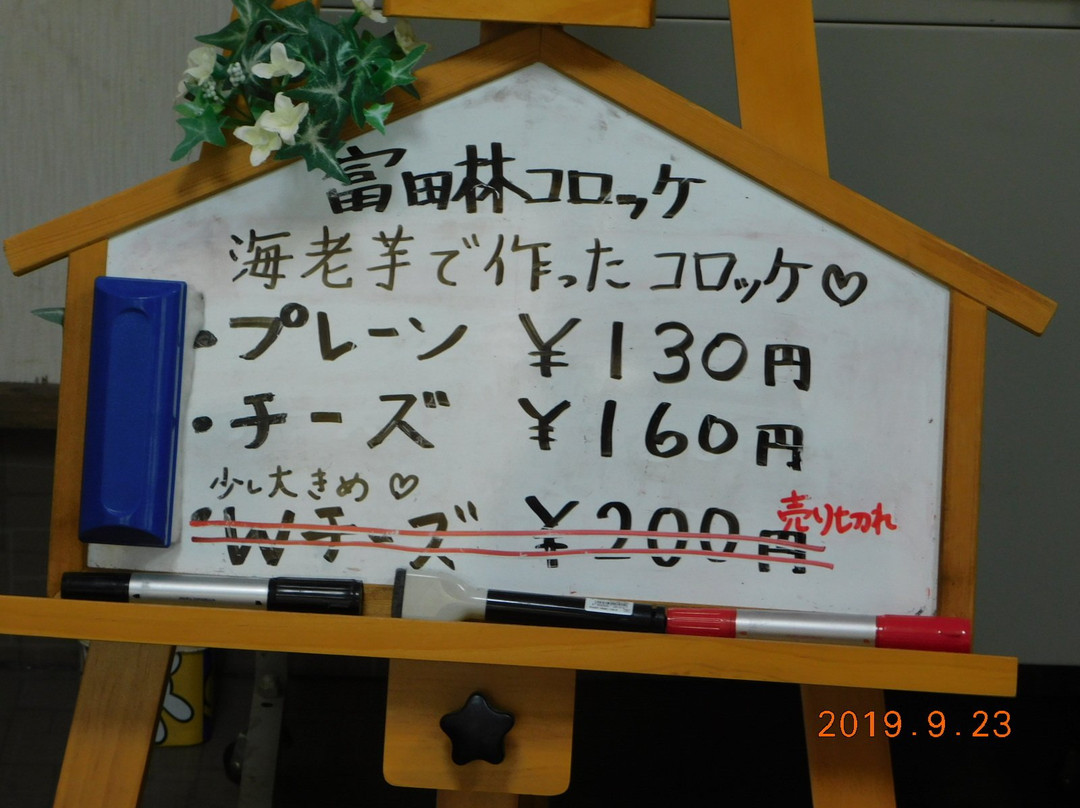 富田林コロッケ
海老芋で作ったコロッケ♡
・プレーン ¥130円
・チーズ ¥160円
少し大きめ♡
・Wチーズ ¥200円 売り切れ
2019.9.23